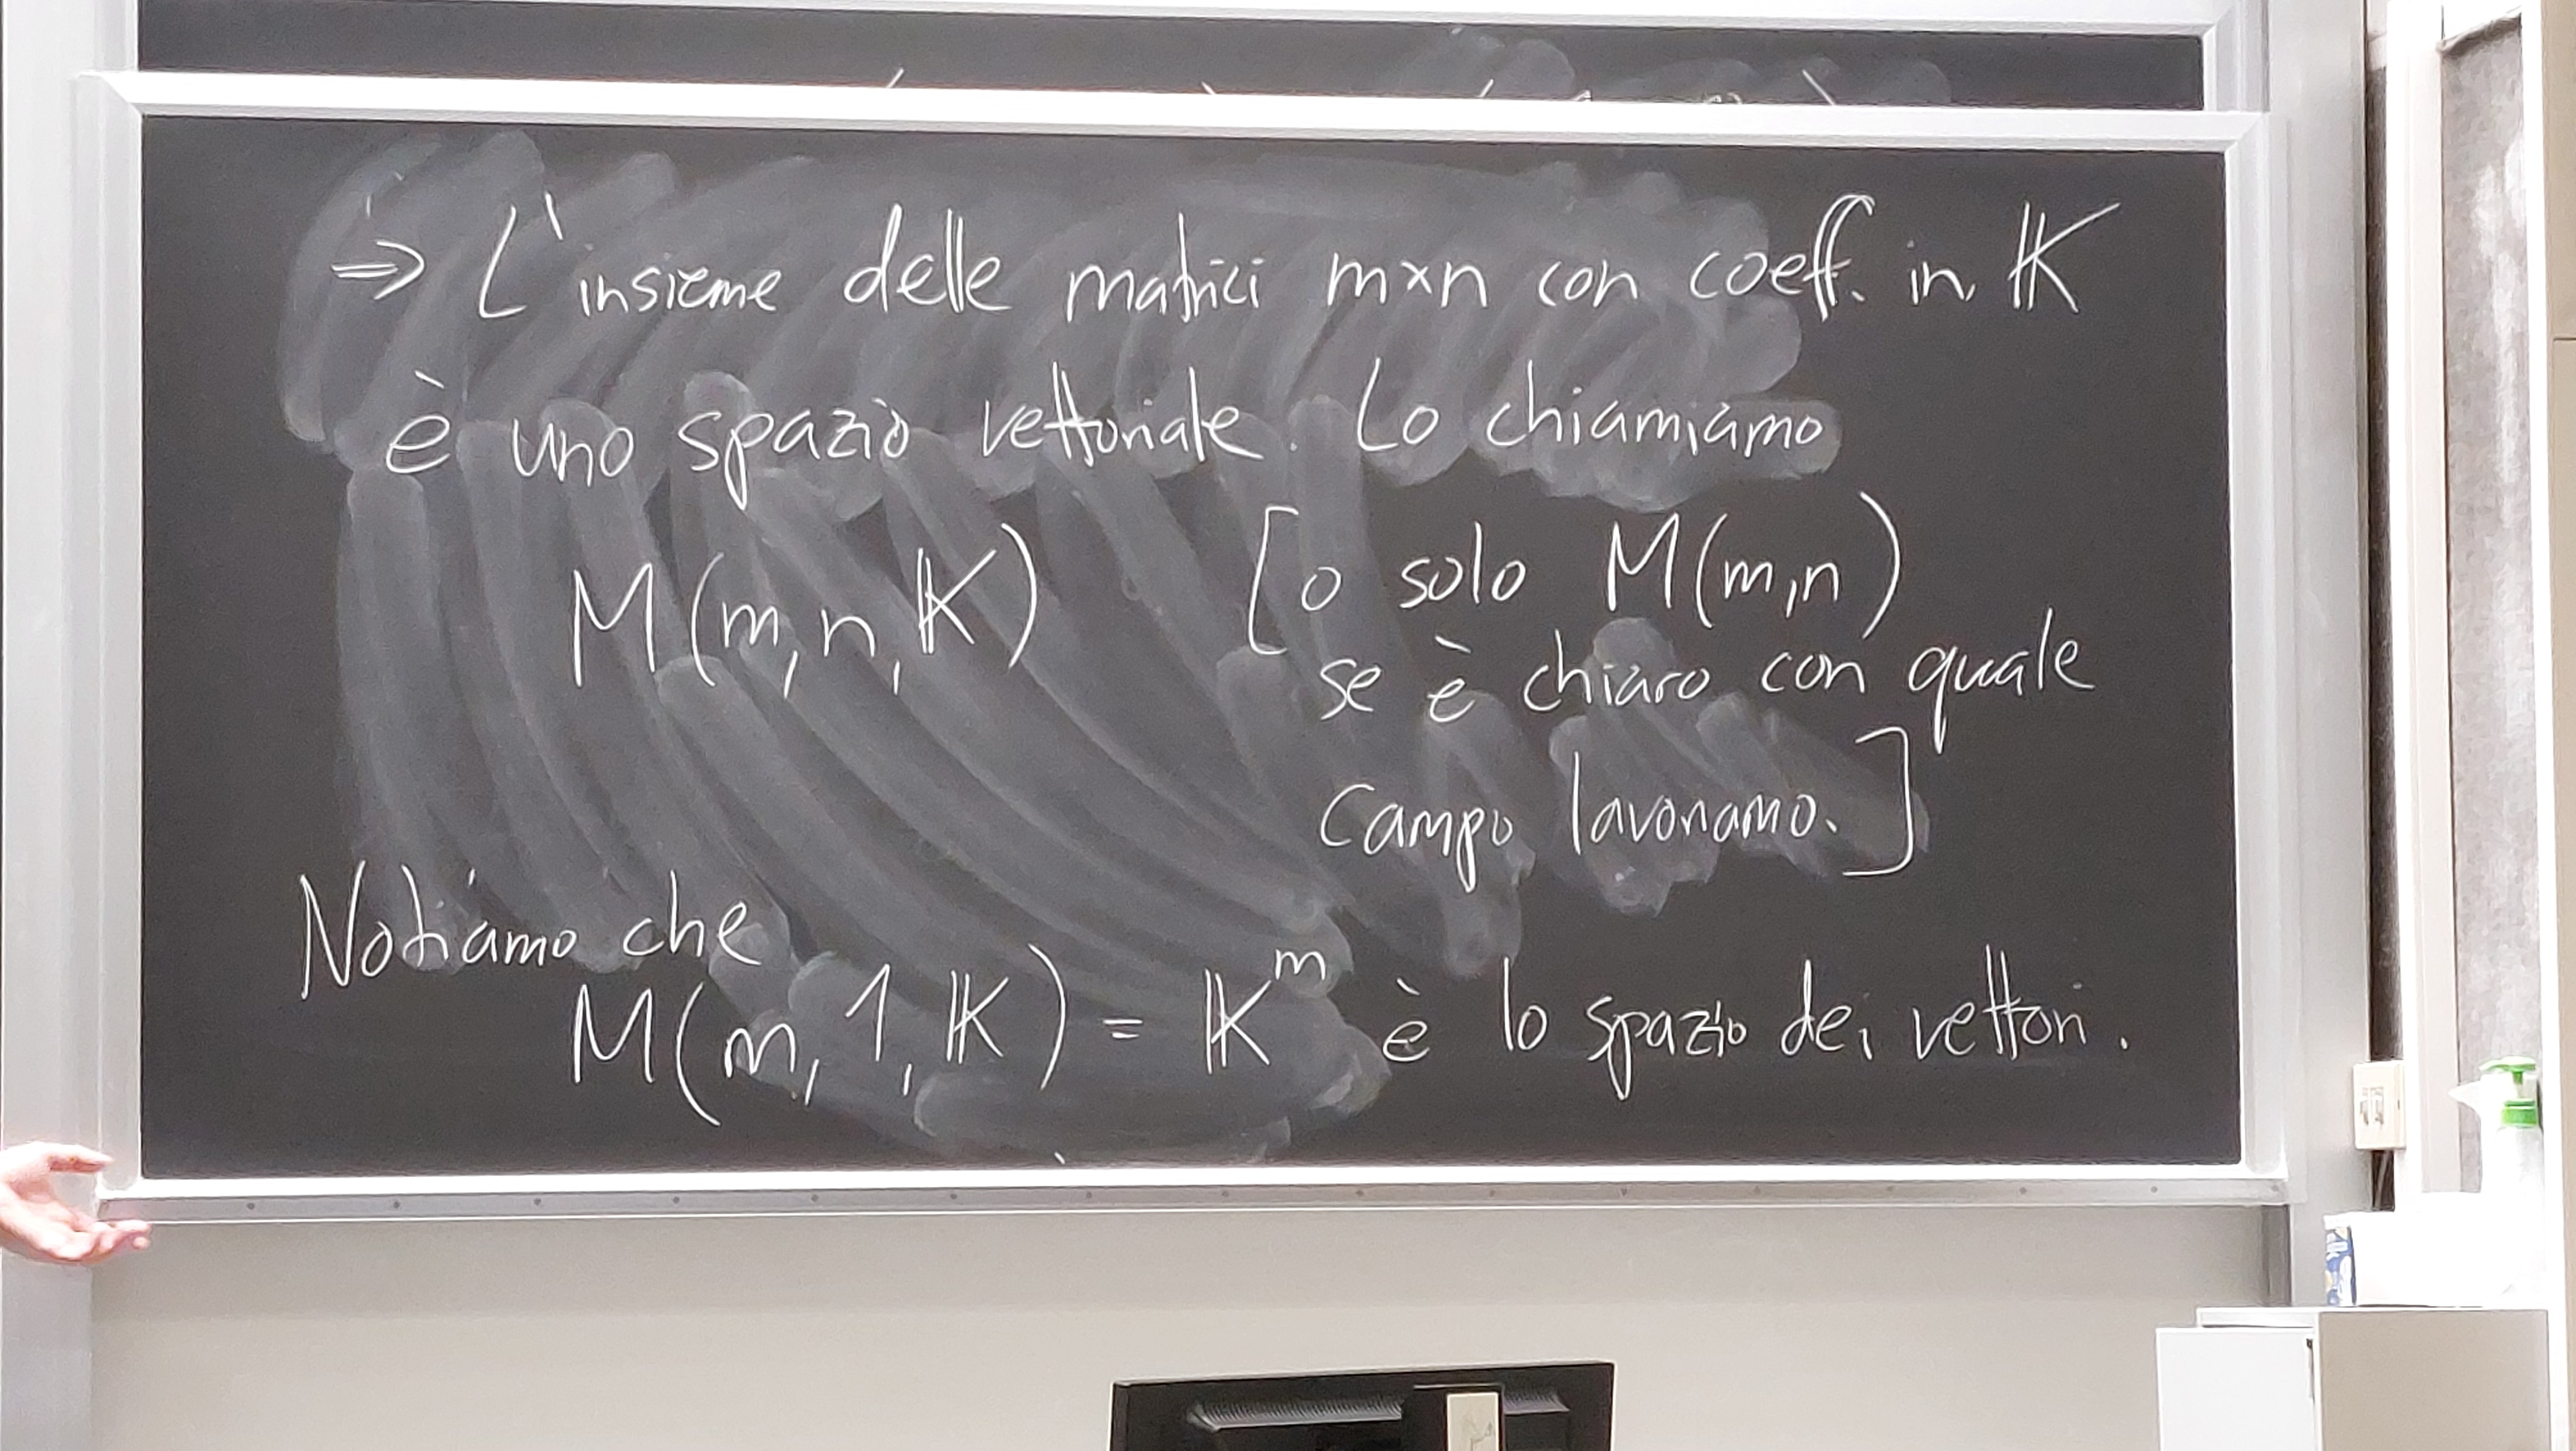 ⇒ L'insieme delle matrici m×n con coeff. in 𝕂
è uno spazio vettoriale. Lo chiamiamo
M(m,n,𝕂) [o solo M(m,n)
se è chiaro con quale
campo lavoriamo.]
Notiamo che
M(m,1,𝕂) = 𝕂ᵐ è lo spazio dei vettori.